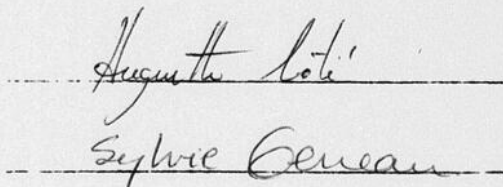 Huguette Côté
Sylvie Geneau